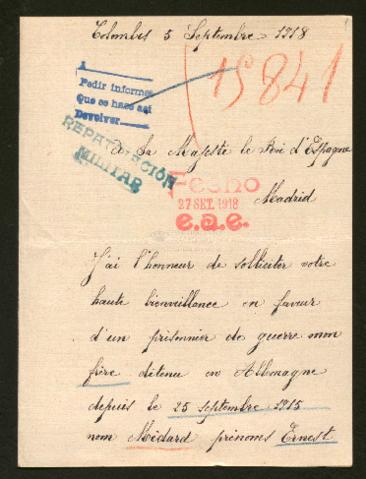 Colombes 5 Septembre 1918
15841
A
Pedir informes
Que se hace así
Devolver
REPATRIACIÓN
MILITAR
A Sa Majesté le Roi d'Espagne
Fecho
27 SET. 1918
e.a.e.
Madrid
J'ai l'honneur de solliciter votre
haute bienveillance en faveur
d'un prisonnier de guerre mon
frère détenu en Allemagne
depuis le 25 septembre 1915
nom Médard prénoms Ernest